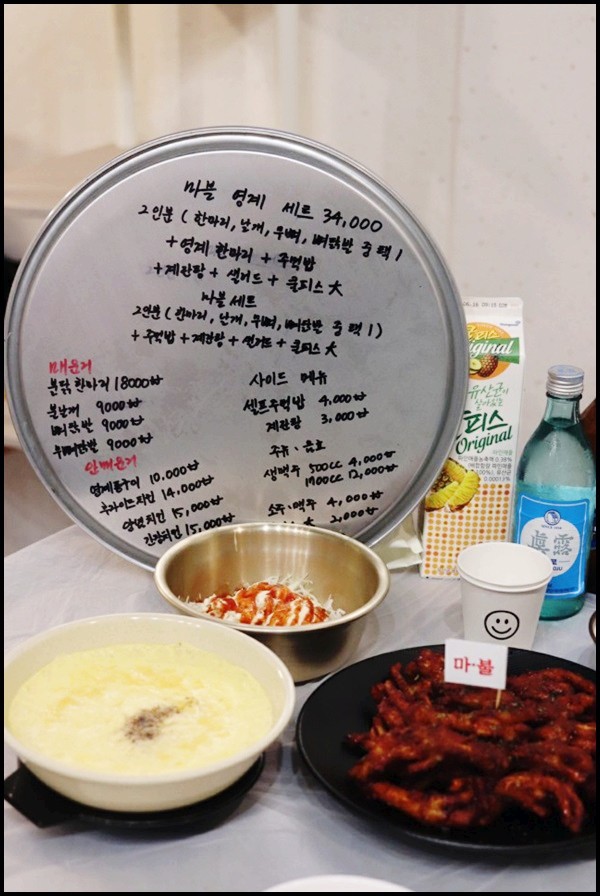 마블 영계 세트 34,000
2인분 (한마리, 날개, 무뼈, 뼈닭발 중 택 1
+ 영계 한마리 + 주먹밥
+ 계란탕 + 샐러드 + 쿨피스 大
마블 세트
2인분 (한마리, 날개, 무뼈, 뼈닭발 중 택 1)
+ 주먹밥 + 계란탕 + 샐러드 + 쿨피스 大
매운거
불닭 한마리 18000
불날개 9000
뼈닭발 9000
무뼈닭발 9000
안매운거
영계통구이 10,000
후라이드치킨 14,000
양념치킨 15,000
간장치킨 15,000
사이드 메뉴
셀프주먹밥 4,000
계란탕 3,000
주류·음료
생맥주 500cc 4,000
12,000
소주·맥주 4,000
2,000
Original
유산균이
살아있는
피스
Original
眞露
마·불